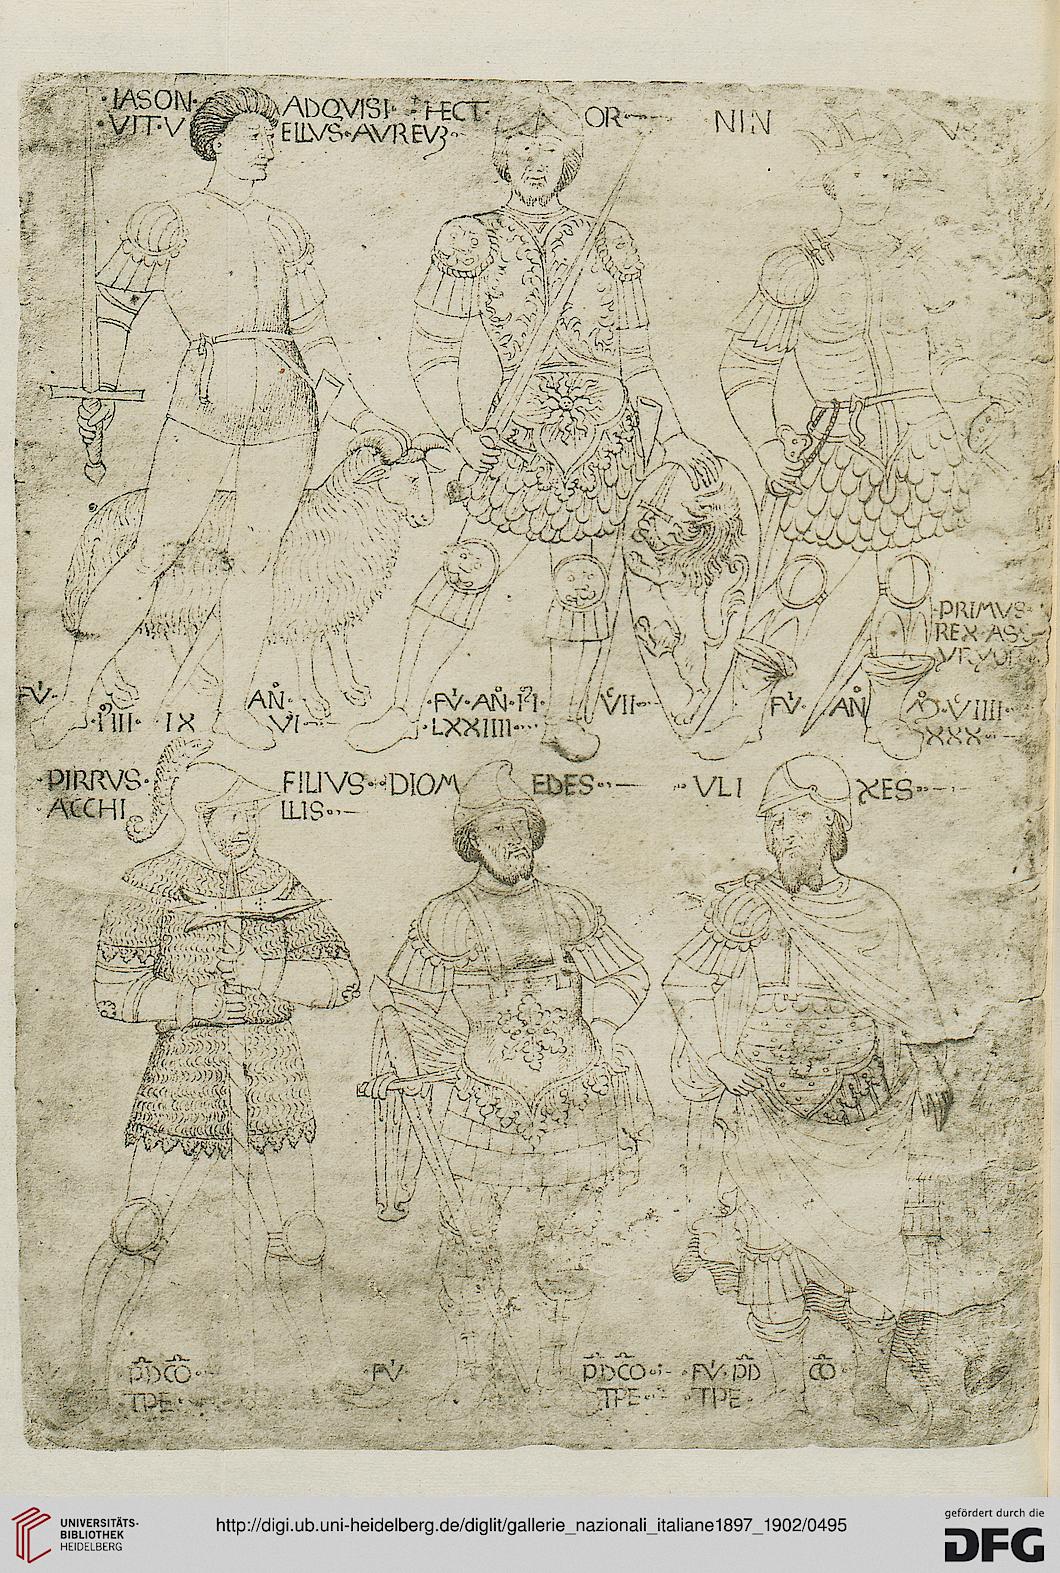 ·IASON· ADQVISI·
·VIT·V ELLVS·AVREVȝ·
HECT· OR
NIN VS
FV· AN̊·
·M̊III· IX VI
·FV·AN̊·M̊· VII
·LXXIIII
·PRIMVS·
REX·AS
FV· AN̊ VIIII·
XXX
·PIRRVS· FILIVS
ACCHI LLIS
·DIOM EDES
VLI XES
P̅D̅C̅O̅·
TPE·
·FV· P̅D̅C̅O̅
TPE
·FV·P̅D̅ C̅O̅·
TPE·
UNIVERSITÄTS-
BIBLIOTHEK
HEIDELBERG
http://digi.ub.uni-heidelberg.de/diglit/gallerie_nazionali_italiane1897_1902/0495
gefördert durch die
DFG